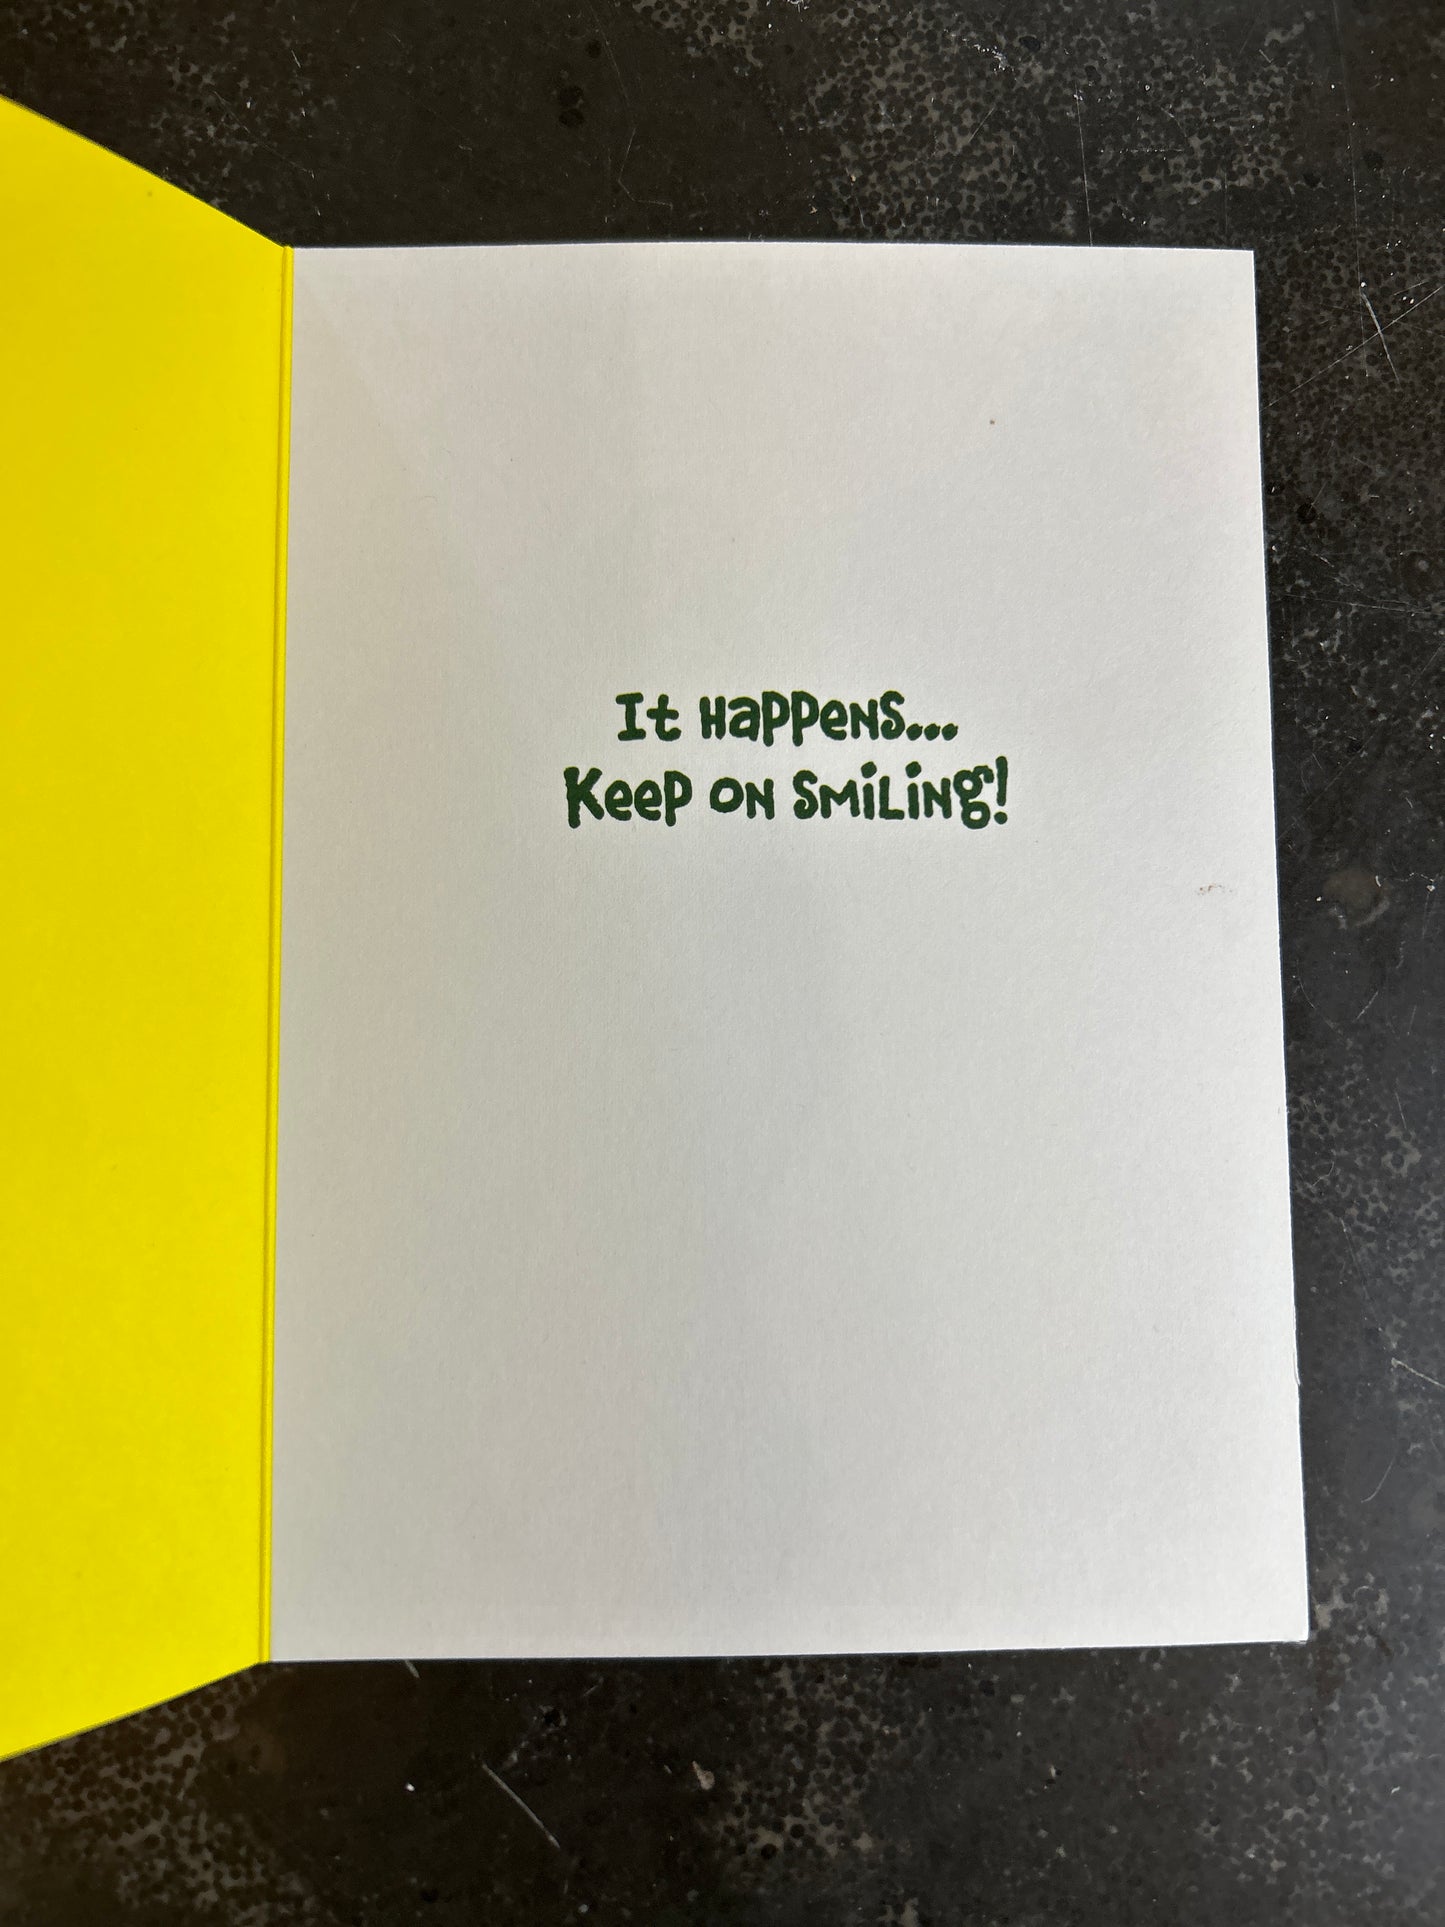 It Happens...
Keep on Smiling!